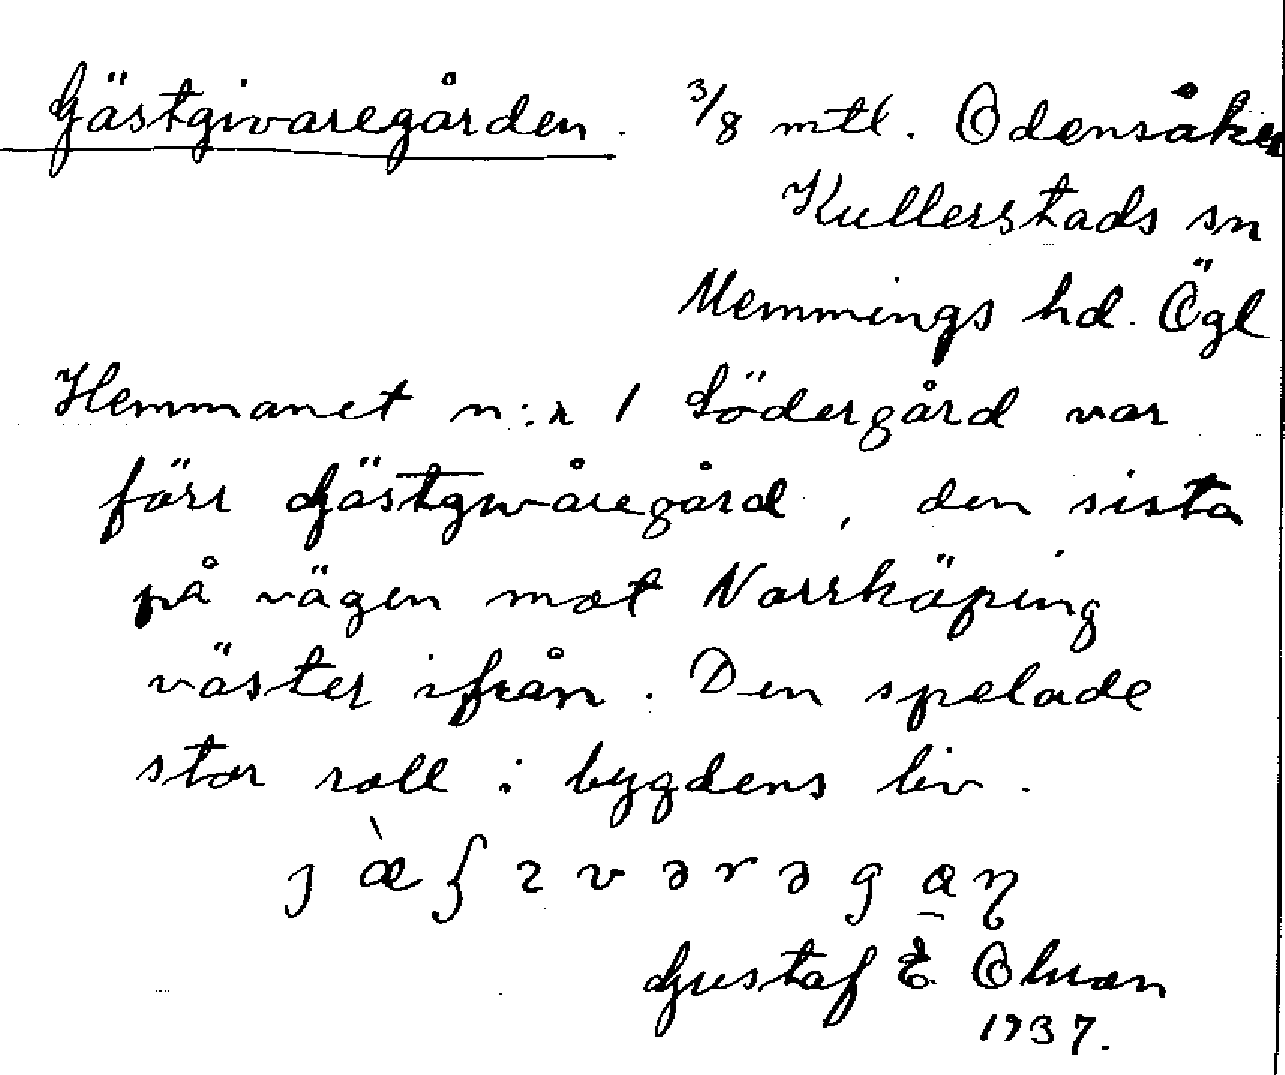 Gästgivaregården. 3/8 mtl. Odensåker
Kullerstads sn
Memmings hd. Ögl
Hemmanet n:r 1 Södergård var
förr Gästgivaregård, den sista
på vägen mot Norrköping
väster ifrån. Den spelade
stor roll i bygdens liv.
Gustaf E
1937.